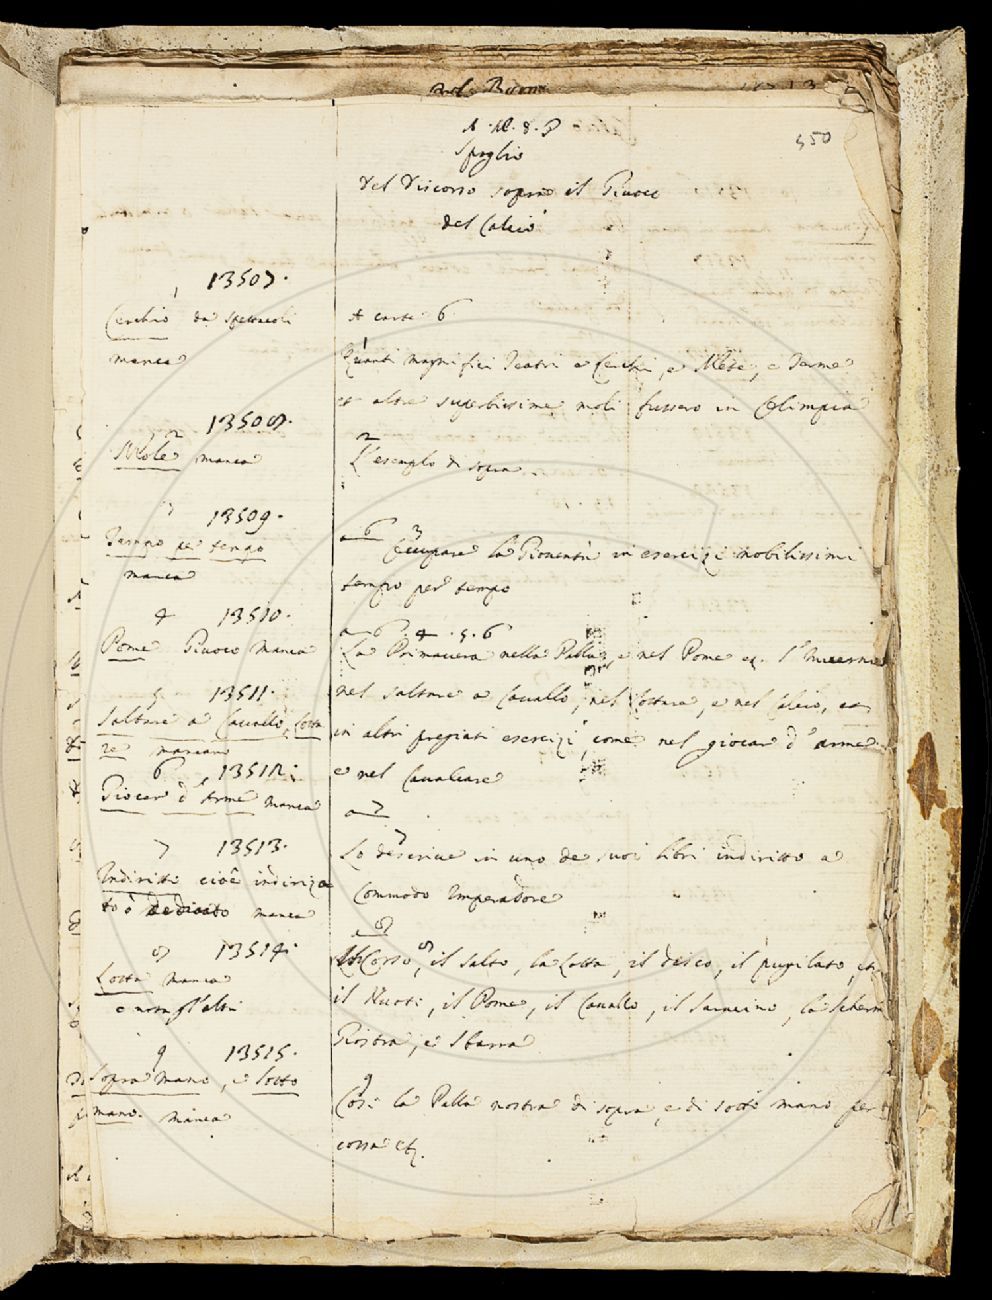 350
Spoglio
del Discorso sopra il Giuoco
del Calcio
13507.
1
Cerchio da spettacoli
manca
A carte 6
1
Quanti magnifici Teatri e Cerchi, e Mete, e Terme
et altre superbissime moli fussero in Olimpia
13508.
2
Mole manca
2
L'esemplo di sopra
3 13509.
Tempo per tempo
manca
a 6 3
Occupare la Gioventù in esercizi nobilissimi
tempo per tempo
4 13510.
Pome Giuoco manca
a 6. 4. 5. 6
La Primavera nella Palla, e nel Pome
nel saltare a Cavallo, nel lottare, e nel Calcio, ed
in altri pregiati esercizi, come nel giocar d'arme
e nel Cavalcare
5 13511.
Saltare a Cavallo, Lotta
re mancano
6 13512.
Giocar d'Arme manca
7 13513.
Indiritto cioè indirizza
to o dedicato manca
a 7
7
Lo descrive in uno de suoi libri indiritto a
Commodo Imperadore
8 13514.
Lotta manca
e non gl'altri
a 8
8
Il Corso, il salto, la Lotta, il disco, il pugilato, etc.
il Nuoto, il Pome, il Cavallo, il Saracino, la scherm
Giostra, e Sbarra
9 13515.
Sopra mano, e sotto
mano. manca
9
Così la Palla nostra di sopra, e di sotto mano per
cossa etc.